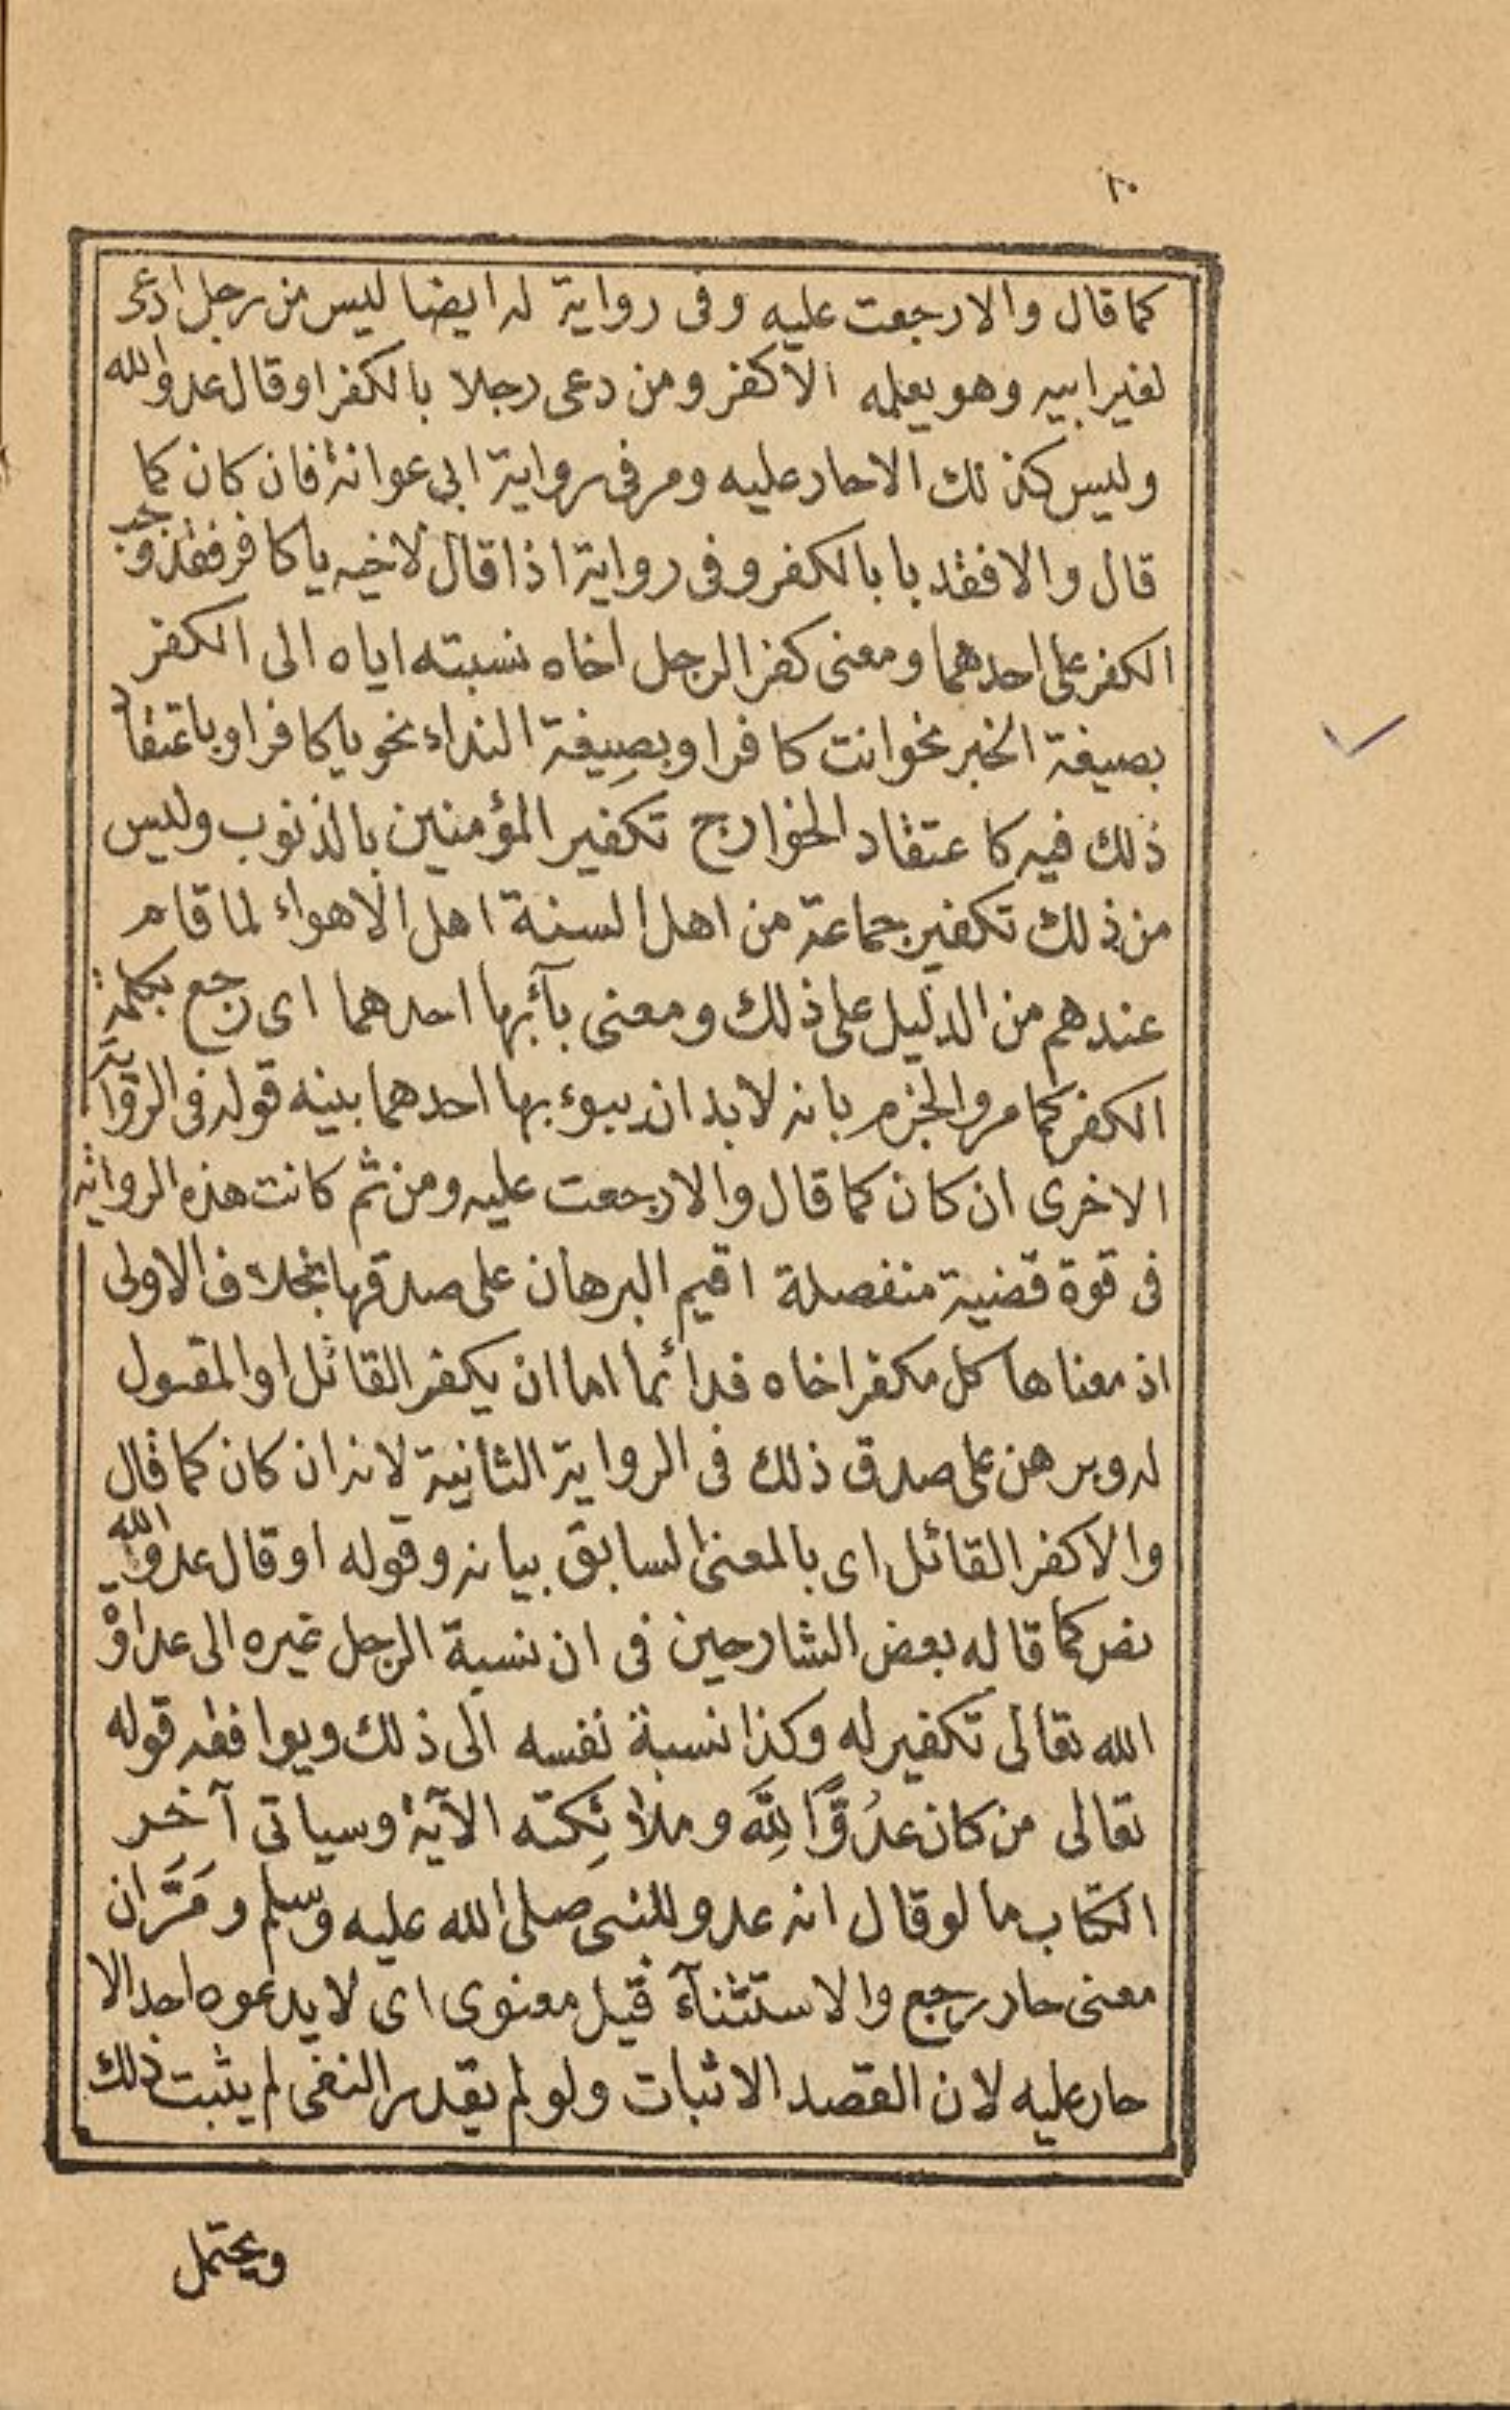 ١٠
كما قال والا رجعت عليه وفى رواية له ايضا ليس من رجل ادعى
لغير ابيه وهو يعلمه الا كفر ومن دعى رجلا بالكفر او قال عدو الله
وليس كذلك الا حار عليه ومر فى رواية ابى عوانة فان كان كما
قال والا فقد باء بالكفر وفى رواية اذا قال لاخيه يا كافر فقد وجب
الكفر على احدهما ومعنى كفر الرجل اخاه نسبته اياه الى الكفر
بصيغة الخبر نحو انت كافر او بصِيغة النداء نحو يا كافر او باعتقاد
ذلك فيه كاعتقاد الخوارج تكفير المؤمنين بالذنوب وليس
من ذلك تكفير جماعة من اهل السنة اهل الاهواء لما قام
عندهم من الدليل على ذلك ومعنى بآئبها احدهما اى رجع بكلمة
الكفر كما مر والجزم بانه لابد ان يبوء بها احدهما بينه قوله فى الرواية
الاخرى ان كان كما قال والا رجعت عليه ومن ثم كانت هذه الرواية
فى قوة قضية منفصلة اقيم البرهان على صدقها بخلاف الاولى
اذ معناها كل مكفر اخاه فدائما اما ان يكفر القائل او المقول
له وبرهن على صدق ذلك فى الرواية الثانية لانه ان كان كما قال
والا كفر القائل اى بالمعنى السابق بيانه وقوله او قال عدو الله
نص كما قاله بعض الشارحين فى ان نسبة الرجل غيره الى عداوة
الله تعالى تكفير له وكذا نسبة نفسه الى ذلك ويوافقه قوله
تعالى من كان عدُوًّا لِلَّه وملائِكته الآية وسياتى آخِر
الكتاب ما لو قال انه عدو للنبى صلى الله عليه وسلم ومَرَّ ان
معنى حار رجع والاستثنآء قيل معنوى اى لا يدعوه احد الا
حار عليه لان القصد الاثبات ولو لم يقدر النفى لم يثبت ذلك
ويحتمل